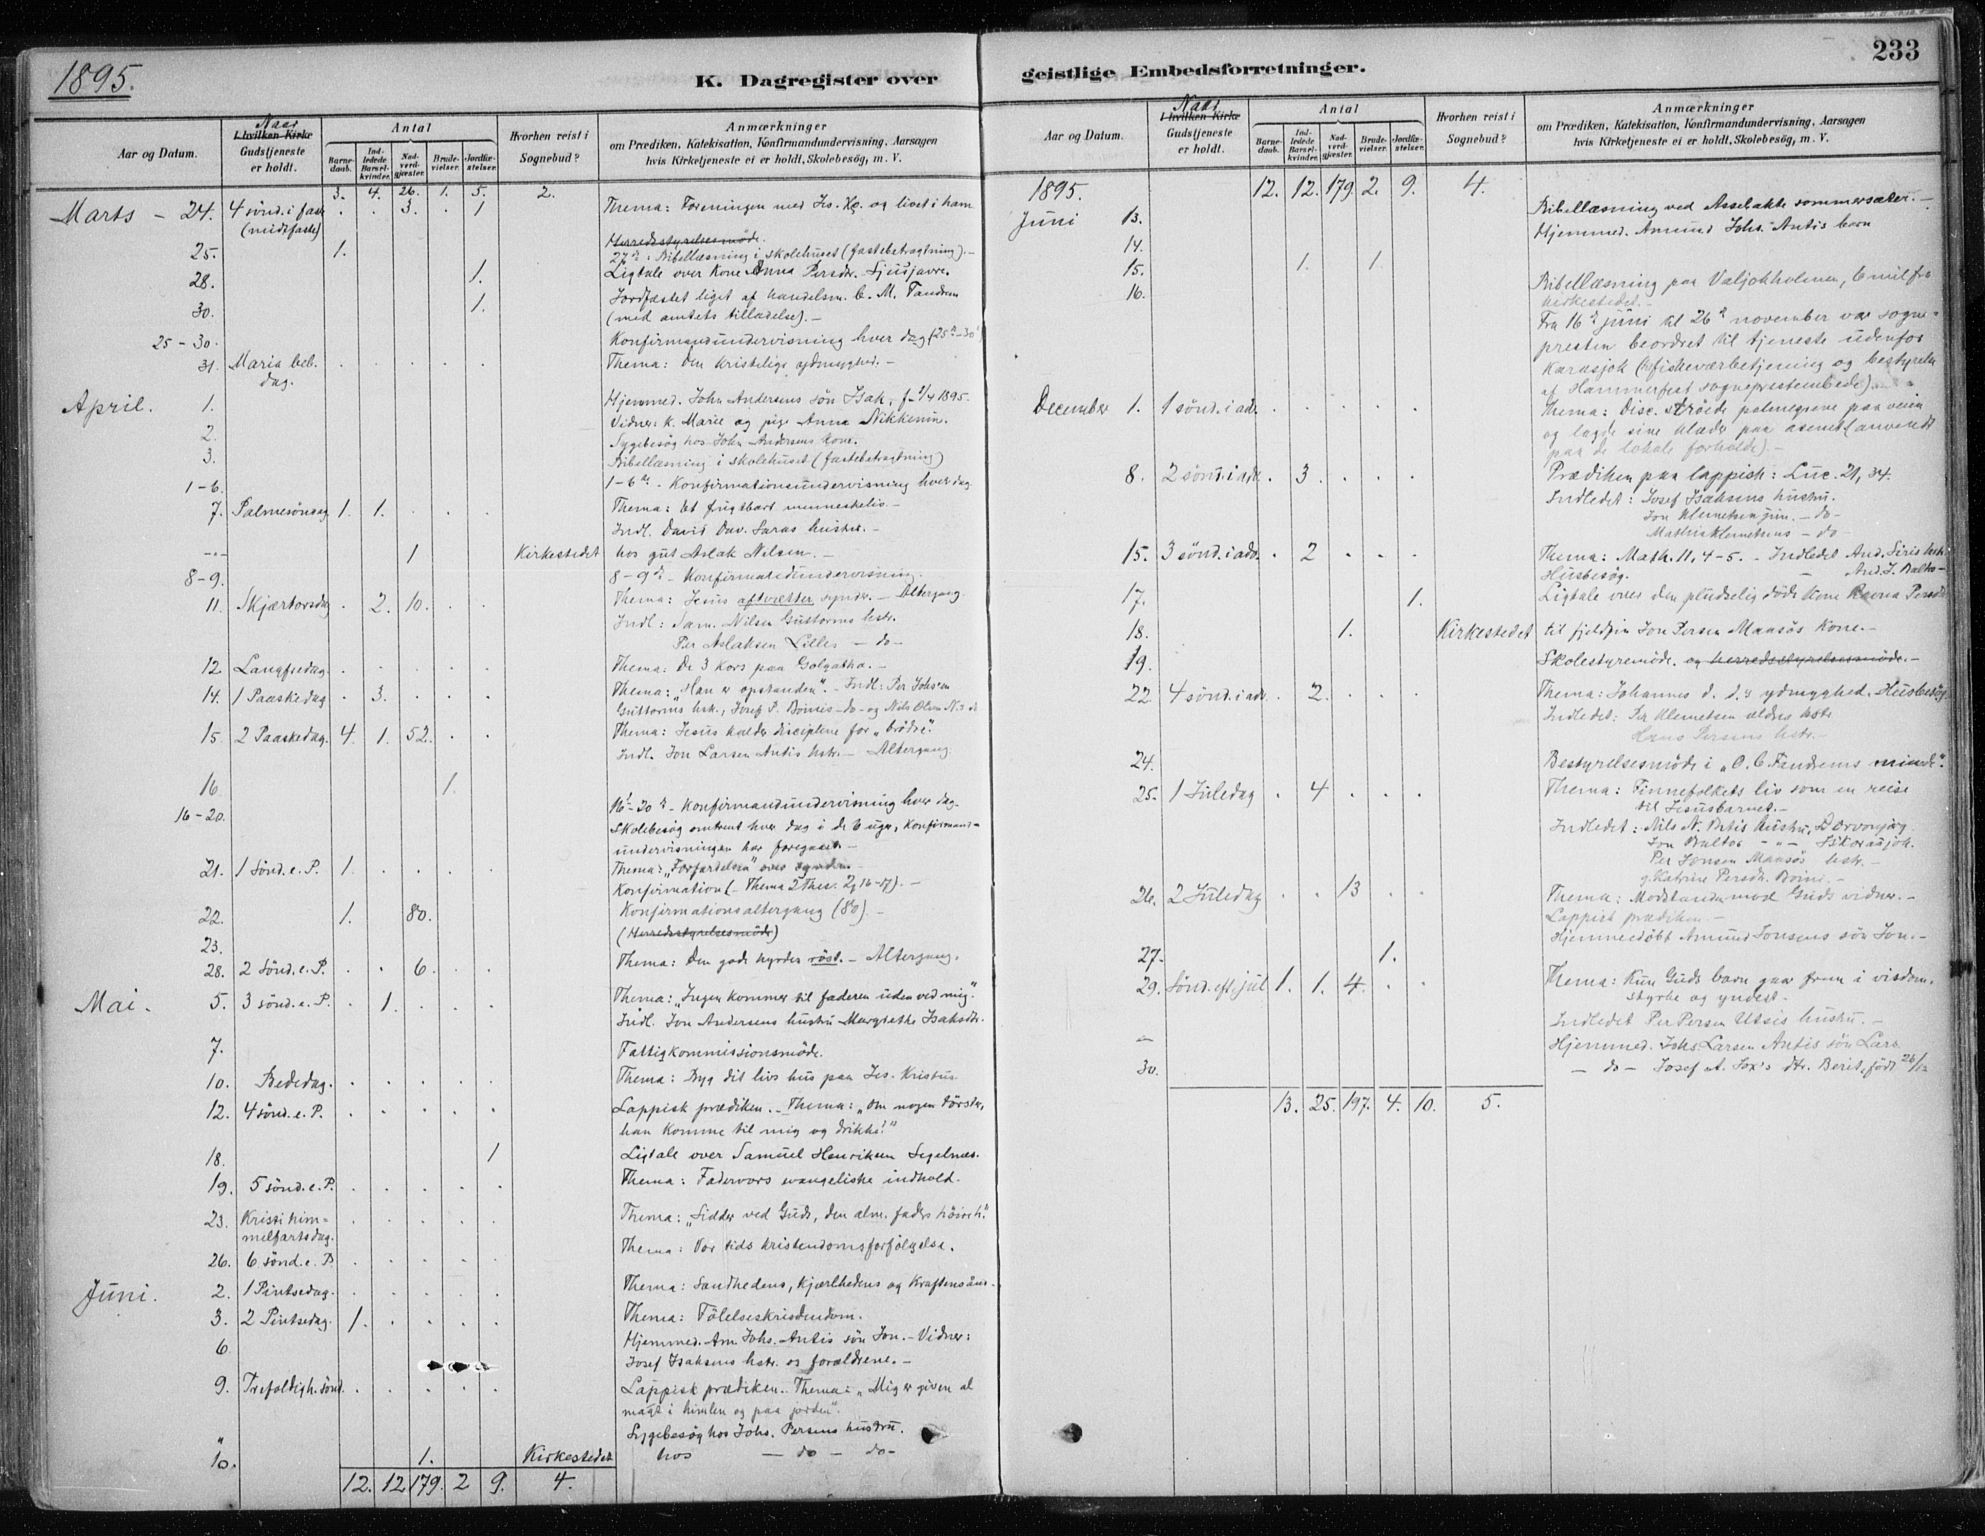 1895.
K. Dagregister over
Aar og Datum.
Naar
I hvilken Kirke
Gudstjeneste
er holdt.
Antal
Barne-
daab.
Ind-
ledede
Barsel-
kvinder.
Nad-
verd-
gjæster.
Brude-
vielser.
Jordfæ-
stelser.
Hvorhen reist i
Sognebud?
Anmærkninger
om Prædiken, Katekisation, Konfirmandundervisning, Aarsagen
hvis Kirketjeneste ei er holdt, Skolebesøg, m. V.
3. 4. 26. 1. 5. 2.
Marts – 24. 4 sønd. i faste . . 3. . 1 Thema: Foreningen med Jes. Kr. og livet i ham
(midtfaste)
Herredsstyrelsesmøde.
25. 1. 27de: Bibellæsning i skolehuset (fastebetragtning). –
28. 1. Ligtale over Kone Anna Persdr.
30. 1. Jordfæstet liget af handelsm. C. M. Fandrem
(med amtets tilladelse). –
25 – 30. Konfirmandundervisning hver dag (25de – 30)
31. Maria beb. . . . . . Thema: Den kristelige ydmyghed. –
dag.
April. 1. Hjemmed. John Andersens søn Isak, f. 1/4 1895.
Vidner: k. Marie og pige Anna Nikkenin.
2. Sygebesøg hos John Andersens Kone.
3. Bibellæsning i skolehuset (fastebetragtning)
1 – 6. 1 – 6te – Konfirmationsundervisning hver dag
7. Palmesøndag 1. 1. . . . Thema: Et frugtbart menneskeliv –
Indl. David Dav. Saras hustru. –
1 Kirkestedet hos gut Aslak Nilsen. –
8 – 9. 8 – 9de – Konfirmandundervisning.
11. Skjærtorsdag . 2. 10. . . Thema: Jesus aftvætter synder. – Altergang.
Indl: Sam. Nilsen Guttorms hstr.
Per Aslaksen Lilles – do –
12. Langfredag . . . . . Thema: De 3 kors paa Golgatha. –
14. 1 Paaskedag . 3. . . . Thema: „Han er opstanden“. – Indl: Per Johsen
Guttorms hst., Josef P. Boinis – do – og Nils Olsen
15. 2 Paaskedag. 4. 1. 52. . . Thema: Jesus holder disciplene for „brødre“.
Indl. Jon Larsen Antis hstr. – Altergang.
16. 1.
16 – 20. 16 – 20de – Konfirmandundervisning hver dag.
Skolebesøg omtrent hver dag i de 6 uger, konfirmand-
undervisningen har foregaaet. –
21. 1 Sønd. e. P. 1. Thema: „Forfærdelsen“ over synden.
Konfirmation (– Thema 2 Thes. 2, 16 – 17). –
22. 1. 80. Konfirmationsaltergang (80). –
23. (Herredsstyrelsesmøde)
28. 2 Sønd. e. P. . . 6. . . Thema: Den gode hyrdes røst. – Altergang.
Mai. 5. 3 sønd. e. P. . 1. . . . Thema: „Ingen kommer til faderen uden ved mig“.
Indl. Jon Andersens hustru Margrethe Isaksdr.
7. Fattigkommissionsmøde.
10. Bededag. . . . . . Thema: Byg dit livs hus paa Jes. Kristus
12. 4 sønd. e. P. . . . . . Lappisk prædiken. – Thema: „Om nogen tørster,
han komme til mig og drikke!“
18. 1 Ligtale over Samuel Henriksen
19. 5 sønd. e. P. . . . . . Thema: Fadervors evangeliske indhold.
23. Kristi him- . . . . . Thema: „Sidder ved Guds, den alm. faders høire h.“
melfartsdag.
26. 6 sønd. e. P. . . . . . Thema: Vor tids kristendomsforfølgelse.
Juni. 2. 1 Pintsedag. . . . . . Thema: Sandhedens, Kjærlhedens og Kraftens aand.
3. 2 Pintsedag. 1. . . . . Thema: Følelseskristendom.
6. Hjemmed. Am. Johs. Antis søn Jon. – Vidner:
Josef Isaksens hstr. og forældrene. –
9. Trefoldigh. sønd. . . . . . Lappisk prædiken. Thema: „Mig er given al
magt i himlen og paa jorden“.
„ Sygebesøg hos Johs. Persens hustru.
10. 1. Kirkestedet hos – do – do –
12. 12 179. 2 9. 4.
233
geistlige Embedsforretninger.
Aar og Datum.
Naar
I hvilken Kirke
Gudstjeneste
er holdt.
Antal
Barne-
daab.
Ind-
ledede
Barsel-
kvinder.
Nad-
verd-
gjæster.
Brude-
vielser.
Jordfæ-
stelser.
Hvorhen reist i
Sognebud?
Anmærkninger
om Prædiken, Katekisation, Konfirmandundervisning, Aarsagen
hvis Kirketjeneste ei er holdt, Skolebesøg, m. V.
1895. 12. 12. 179. 2. 9. 4.
Juni 13. Bibellæsning ved Assebakte sommersæter. –
14. Hjemmed. Amund Johs. Antis barn
15. 1. 1.
16. Bibellæsning paa Valjokholmen, 6 mil fra
kirkestedet. –
Fra 16de juni til 26de november var sogne-
presten beordret til tjeneste udenfor
Karasjok (fiskeværbetjening og bestyrelse
af Hammerfest sogneprestembede).
December 1. 1 sønd. i adv. . . . . . Thema: Disc. strøede palmegrene paa veien
og lagde sine klæder paa asenet (anvendt
paa de lokale forholde). –
8. 2 sønd. i adv. . 3. . . . Prædiken paa lappisk: Luc. 21, 34.
Indledet: Josef Isaksens hustru.
Jon Klemetsen jun. – do –
Mathis Klemetsens – do –
15. 3 sønd. i adv. . 2 . . . Thema: Math. 11, 4 – 5. – Indledet And. Siris hstr.
Husbesøg. – And. J. Balto –
17. 1. Ligtale over den pludselig døde Kone Ravna Persdr.
18. 1. Kirkestedet til fjeldfin Jon Persen Maasøs Kone. –
19. Skolestyremøde. og herredsstyrelsesmøde. –
22. 4 sønd. i adv. . 2. . . . Thema: Johannes d. d.s ydmyghed. Husbesøg
Indledet: Per Klemetsen ældres hstr.
Hans Persens hstr. –
24. Bestyrelsesmøde i „O. C. Fandrems minde“.
25. 1 Juledag . 4 . . . Thema: Finnefolkets liv som en reise
til Jesusbarnet. –
Indledet: Nils N. Batis hustru,
Jon Baltos – „ –
Per Jonsen Maasøs hstr. –
g. Katrine Persdr. Boini. –
26. 2 Juledag . . 13 . . Thema: Modstanden mod Guds vidner. –
Lappisk prædiken. –
27. 1. Hjemmedøbt Amund Jonsens søn Jon. –
29. Sønd. eft. jul 1. 1. 4. . . Thema: Kun Guds barn gaar frem i visdom,
styrke og yndest.
Indledet Per Persen Utsis hustru. –
– Hjemmed. Johs. Larsen Antis søn Lars
30. – do – Josef A. Jox's dtr. Berit, født 26/12
13. 25. 197. 4. 10. 5.